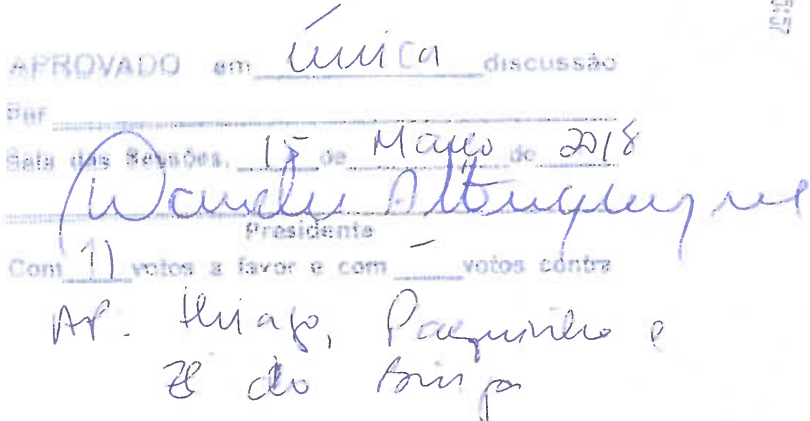 APROVADO em única discussão
Por
Sala das Sessões, 15 de Março de 2018
Presidente
Com 11 votos a favor e com — votos contra
AP. Thiago, Paquinho e
Zé do
5:57